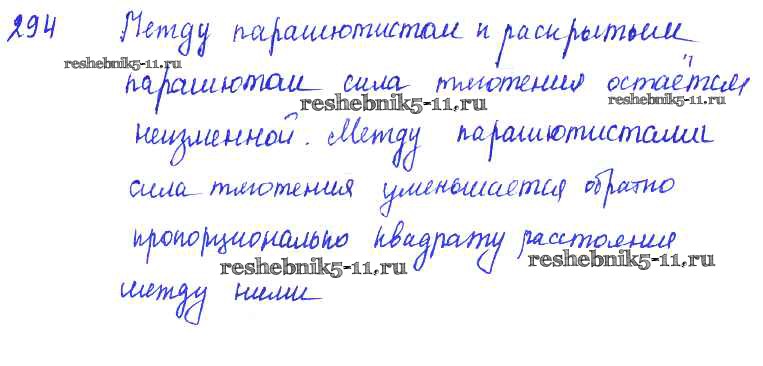 294 Между парашютистом и раскрытым
reshebnik5-11.ru
парашютом сила тяготения остаётся
reshebnik5-11.ru reshebnik5-11.ru
неизменной. Между парашютистами
сила тяготения уменьшается обратно
пропорционально квадрату расстояния
reshebnik5-11.ru reshebnik5-11.ru
между ними